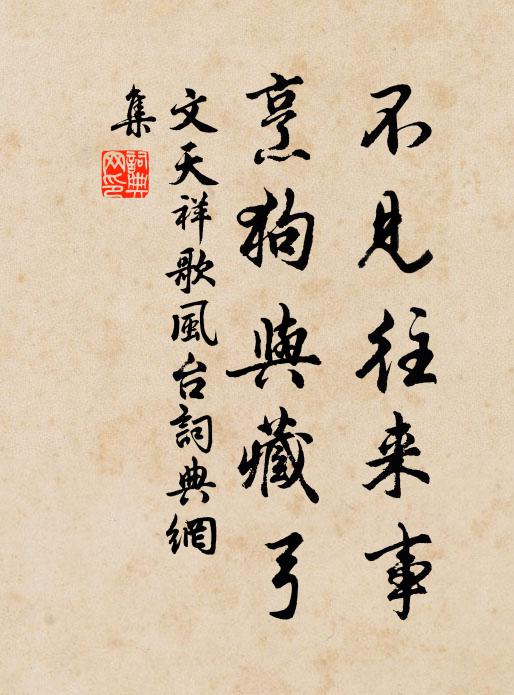 不見往来事
烹狗與藏弓
文天祥歌風台詞典網
集
詞典网印